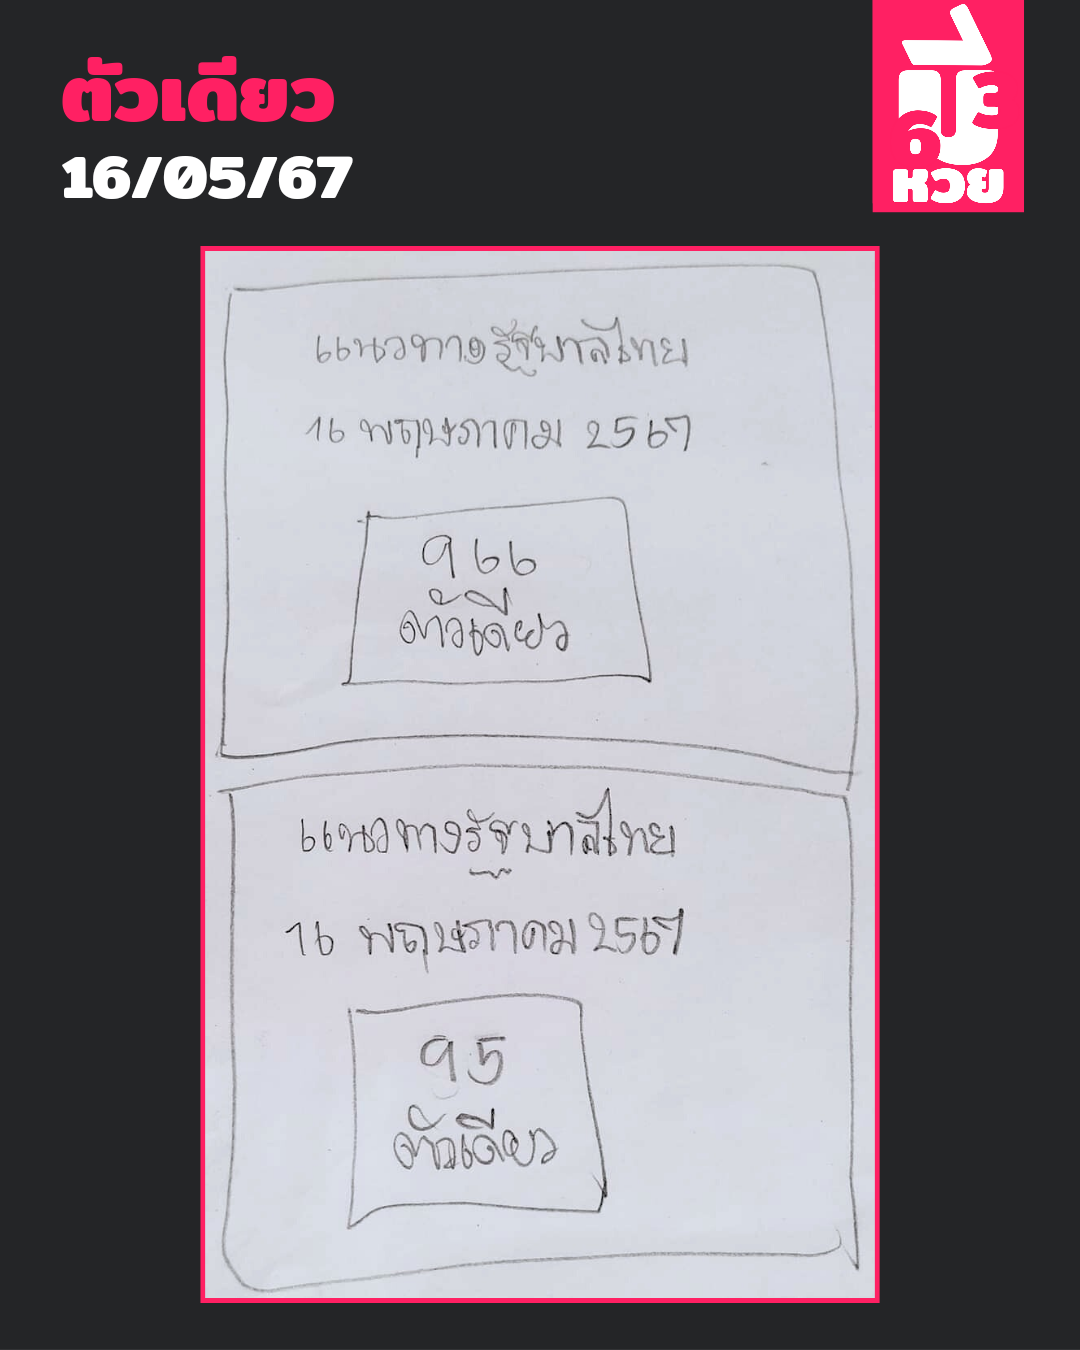 ตัวเดียว
16/05/67
หวย
แนวทางรัฐบาลไทย
16 พฤษภาคม 2567
966
ตัวเดียว
แนวทางรัฐบาลไทย
16 พฤษภาคม 2567
95
ตัวเดียว